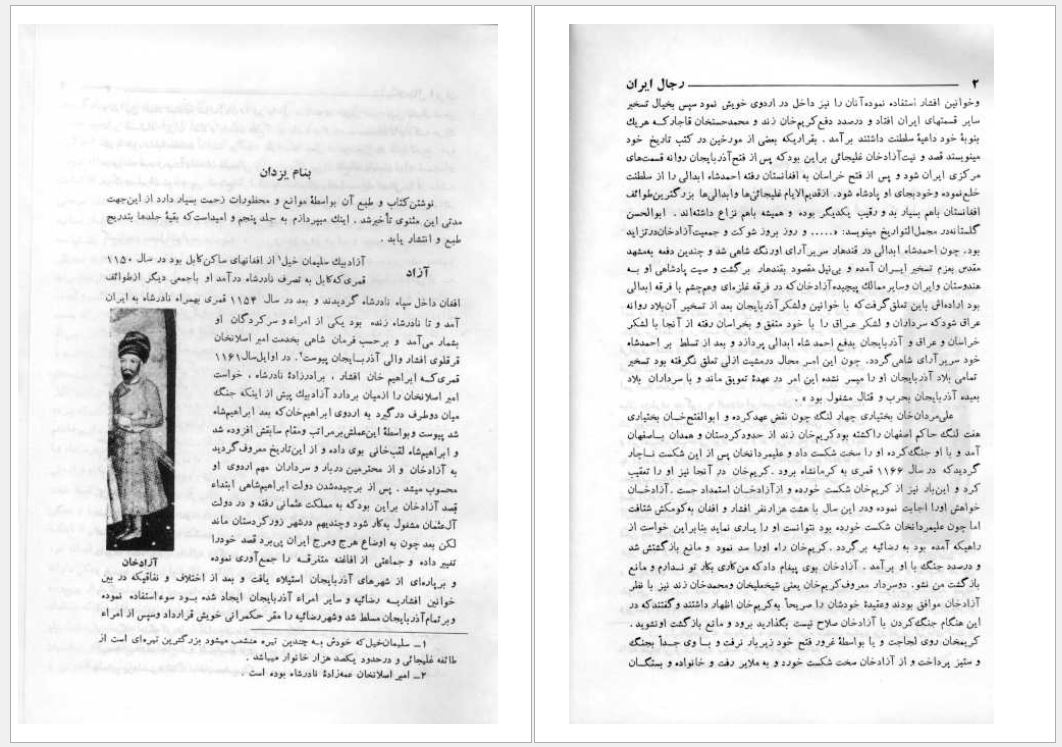 بنام یزدان
نوشتن کتاب و طبع آن بواسطهٔ موانع و محظورات زحمت بسیار دارد از این جهت
مدتی این مثنوی تأخیر شد . اینك میپردازم به جلد پنجم و امید است که بقیهٔ جلدها بتدریج
طبع و انتشار یابد .
آزاد
آزادبیك سلیمان خیل۱ از افغانهای ساکن کابل بود در سال ۱۱۵۰
قمری که کابل به تصرف نادرشاه درآمد او باجمعی دیگر از طوائف
افغان داخل سپاه نادرشاه گردیدند و بعد در سال ۱۱۵۴ قمری بهمراه نادرشاه به ایران
آمد و تا نادرشاه زنده بود یکی از امراء و سرکردگان او
بشمار می‌آمد و برحسب فرمان شاهی بخدمت امیر اسلانخان
قرقلوی افشار والی آذربایجان پیوست۲. در اوایل سال ۱۱۶۱
قمری که ابراهیم خان افشار ، برادرزادهٔ نادرشاه ، خواست
امیر اسلانخان را از میان بردارد آزادبیك پیش از اینکه جنگ
میان دو طرف درگیرد به اردوی ابراهیم خان که بعد ابراهیم شاه
شد پیوست و بواسطهٔ این عملش بر مراتب و مقام سابقش افزوده شد
و ابراهیم شاه لقب خانی بوی داده و از این تاریخ معروف گردید
به آزادخان و از محترمین دربار و سرداران مهم اردوی او
محسوب میشد . پس از برچیده شدن دولت ابراهیم شاهی ابتداء
قصد آزادخان براین بود که به مملکت عثمانی رفته و در دولت
آل عثمان مشغول به کار شود و چندی هم در شهر زور کردستان ماند
لکن بعد چون به اوضاع هرج و مرج ایران پی برد قصد خود را
تغییر داده و جماعتی از افاغنه متفرقه را جمع آوری نموده
آزادخان
و برپاره‌ای از شهرهای آذربایجان استیلاء یافت و بعد از اختلاف و نفاقیکه در بین
خوانین افشاریه رضائیه و سایر امراء آذربایجان ایجاد شده بود سوء استفاده نموده
و بر تمام آذربایجان مسلط شد و شهر رضائیه را مقر حکمرانی خویش قرارداد و سپس از امراء
۱ـ سلیمان خیل که خودش به چندین تیره منشعب میشود بزرگترین تیره‌ای است از
طائفه غلیجائی و در حدود یکصد هزار خانوار میباشد .
۲ـ امیر اسلانخان عمه‌زادهٔ نادرشاه بوده است .
۲ رجال ایران
وخوانین افشار استفاده نموده آنان را نیز داخل در اردوی خویش نمود سپس بخیال تسخیر
سایر قسمتهای ایران افتاد و درصدد دفع کریم خان زند و محمد حسنخان قاجار که هریك
بنوبهٔ خود داعیهٔ سلطنت داشتند برآمد . بقراریکه بعضی از مورخین در کتب تاریخ خود
مینویسند قصد و نیت آزادخان غلیجائی براین بود که پس از فتح آذربایجان روانه قسمت‌های
مرکزی ایران شود و پس از فتح خراسان به افغانستان رفته احمدشاه ابدالی را از سلطنت
خلع نموده و خود بجای او پادشاه شود. از قدیم الایام غلیجائی‌ها و ابدالی‌ها بزرگترین طوائف
افغانستان باهم بسیار بد و رقیب یکدیگر بوده و همیشه باهم نزاع داشته‌اند . ابوالحسن
گلستانه در مجمل التواریخ مینویسد: «..... و روز بروز شوکت و جمعیت آزادخان در تزاید
بود. چون احمدشاه ابدالی در قندهار سریرآرای اورنگ شاهی شد و چندین دفعه به مشهد
مقدس بعزم تسخیر ایران آمده و بی نیل مقصود بقندهار برگشت و صیت پادشاهی او به
هندوستان و ایران و سایر ممالك پیچیده آزادخان که در فرقه غلزه‌ای و هم چشم با فرقه ابدالی
بود اراده‌اش باین تعلق گرفت که با خوانین و لشکر آذربایجان بعد از تسخیر آن بلاد روانه
عراق شود که سرداران و لشکر عراق را با خود متفق و بخراسان رفته از آنجا با لشکر
خراسان و عراق و آذربایجان بدفع احمد شاه ابدالی پردازد و بعد از تسلط بر احمدشاه
خود سریرآرای شاهی گردد. چون این امر محال در مشیت ازلی تعلق نگرفته بود تسخیر
تمامی بلاد آذربایجان او را میسر نشده این امر در عهدهٔ تعویق ماند و با سرداران بلاد
بعیده آذربایجان بحرب و قتال مشغول بود » .
علی مردان خان بختیاری چهار لنگ چون نقض عهد کرده و ابوالفتح خان بختیاری
هفت لنگ حاکم اصفهان را کشته بود کریم خان زند از حدود کردستان و همدان باصفهان
آمد و با او جنگ کرده او را سخت شکست داد و علیمردانخان پس از این شکست ناچار
گردید که در سال ۱۱۶۶ قمری به کرمانشاه برود . کریم خان در آنجا نیز او را تعقیب
کرد و این بار نیز از کریم خان شکست خورده و از آزادخان استمداد جست . آزادخان
خواهش او را اجابت نموده و در این سال با هشت هزار نفر افشار و افغان به کومکش شتافت
اما چون علیمردانخان شکست خورده بود نتوانست او را یاری نماید بنابراین خواست از
راهیکه آمده بود به رضائیه برگردد . کریم خان راه او را سد نمود و مانع بازگشتش شد
و درصدد جنگ با او برآمد . آزادخان بوی پیغام داد که من کاری بکار تو ندارم و مانع
بازگشت من نشو. دو سردار معروف کریم خان یعنی شیخعلیخان و محمدخان زند نیز با نظر
آزادخان موافق بودند و عقیدهٔ خودشان را صریحاً به کریم خان اظهار داشتند و گفتند که در
این هنگام جنگ کردن با آزادخان صلاح نیست بگذارید برود و مانع بازگشت او نشوید .
کریمخان روی لجاجت و یا بواسطهٔ غرور فتح خود زیر بار نرفت و با وی جداً بجنگ
و ستیز پرداخت و از آزادخان سخت شکست خورد و به ملایر رفت و خانواده و بستگان